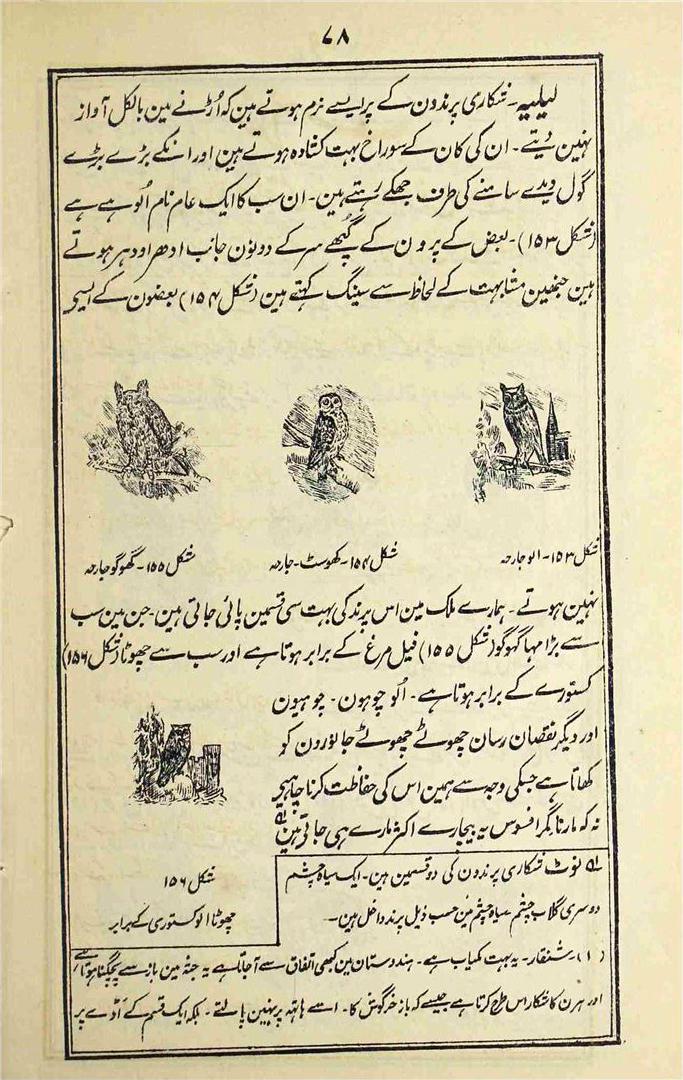 ۷۸
لیلیہ۔ شکاری پرندون کے پر ایسے نرم ہوتے ہین کہ اُڑنے مین بالکل آواز
نہین دیتے۔ ان کی کان کے سوراخ بہت کشادہ ہوتے ہین اور انکے بڑے بڑے
گول دیدے سامنے کی طرف جھکے رہتے ہین۔ ان سب کا ایک عام نام اُلو ہے ہے
(شکل ۱۵۳)۔ بعض کے پرون کے گچھے سر کے دونون جانب ادھر اودہر ہوتے
ہین جنھین مشابہت کے لحاظ سے سینگ کہتے ہین (شکل ۱۵۴) بعضون کے ایسے
شکل ۱۵۳۔ الو جارحہ
شکل ۱۵۴۔ کھوسٹ۔ جارحہ
شکل ۱۵۵۔ گھوگو جارحہ
نہین ہوتے۔ ہمارے ملک مین اس پرند کی بہت سی قسمین پائی جاتی ہین۔ جن مین سب
سے بڑا مہا گہوگو (شکل ۱۵۵) فیل مرغ کے برابر ہوتا ہے اور سب سے چھوٹا (شکل ۱۵۶)
کستورے کے برابر ہوتا ہے۔ اُلو چوہون۔ چوہیون
اور دیگر نقصان رسان چھوٹے چھوٹے جانورون کو
کھاتا ہے جسکی وجہ سے ہمین اس کی حفاظت کرنا چاہیے
نہ کہ مارنا مگر افسوس یہ بیچارے اکثر مارے ہی جاتی ہین
شکل ۱۵۶
چھوٹا الو کستوری کے برابر
نوٹ شکاری پرندون کی دو قسمین ہین۔ ایک سیاہ چشم
دوسری گلاب چشم۔ سیاہ چشم مین حسب ذیل پرند داخل ہین۔
(۱) شنقار۔ یہ بہت کمیاب ہے۔ ہندوستان مین کبھی اتفاق سے آجاتا ہے یہ جثہ مین باز سے پچگنا ہوتا ہے
اور ہرن کا شکار اس طرح کرتا ہے جیسے کہ باز خرگوش کا۔ اسے ہاتھ پر نہین پالتے۔ بلکہ ایک قسم کے اڈے پر